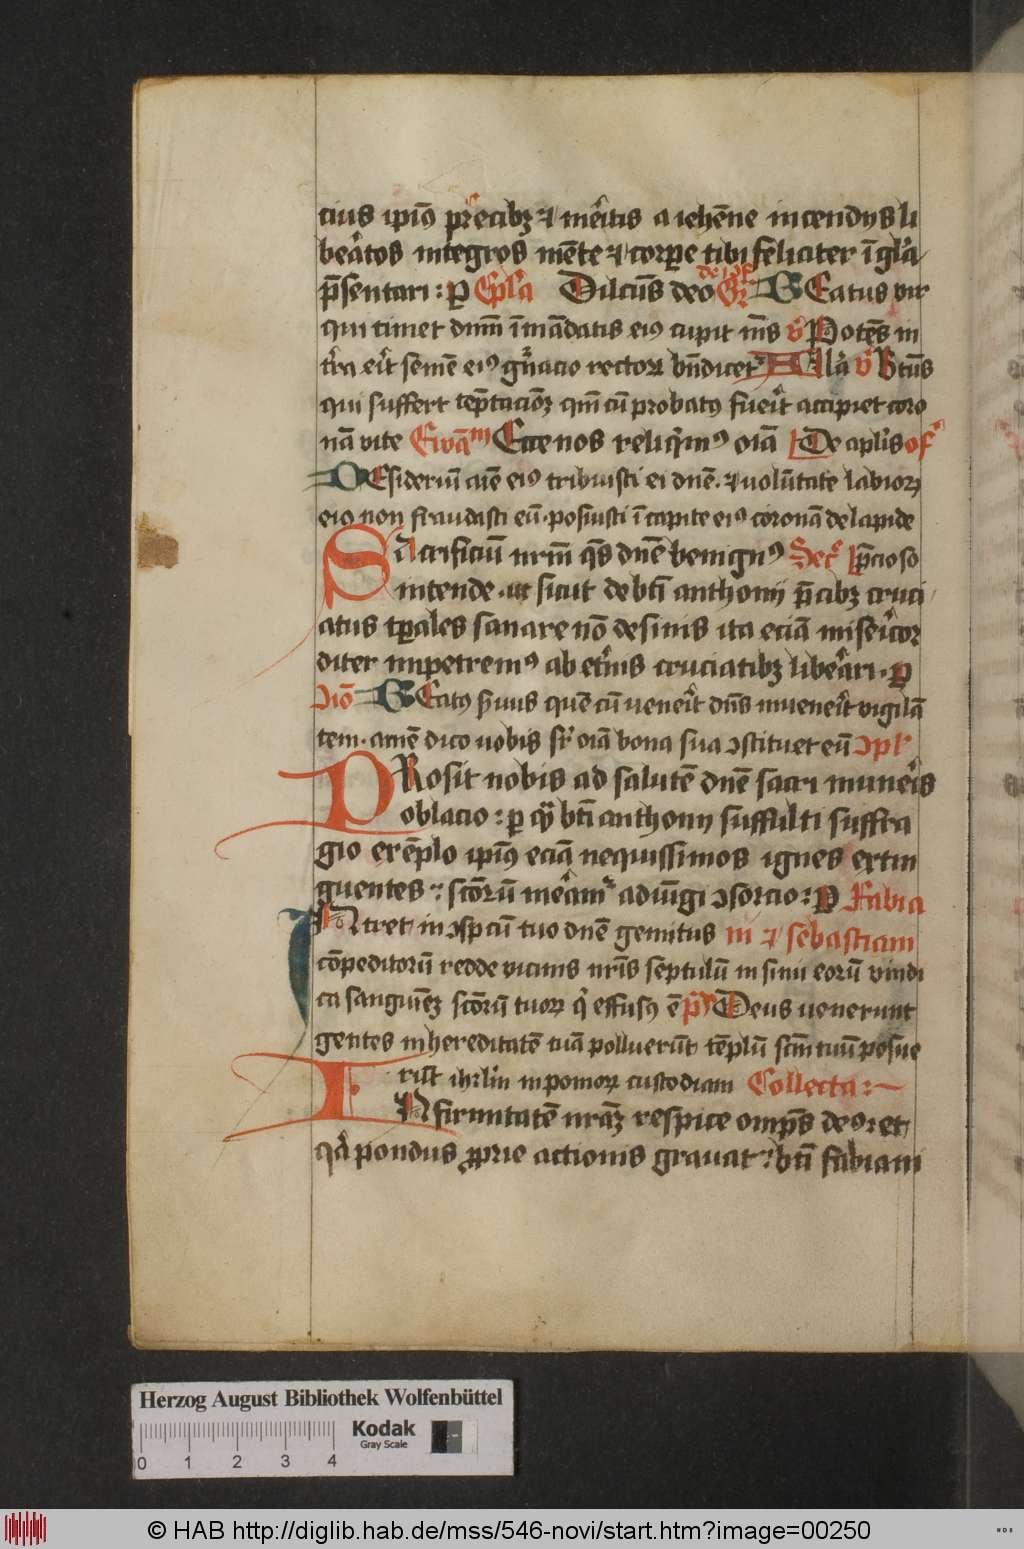 cius ip̄iꝰ precibꝫ ⁊ mēitis a iehēne incendijs li
beātos integros mēte ⁊ corꝑe tibi feliciter ī gl̄a
p̄sentari : ꝑ Epl̄a Dilcūs deo de ꝯf Gr̄ BEatus vir
qui timet dnm̄ ī mādatis eiꝰ cupit nīs v̄ Potēs in
tr̄a er̄it semē eiꝰ gn̄acio rectoꝝ bn̄dicetᷣ All̄a v̄ Btūs
qui suffert tēptacionē qm̄ cū probatꝰ fuer̄it accipiet coro
nā vite Ewāᵐ Ecce nos reliq̄imꝰ oīa De apl̄is of
DEsideriū aīe eiꝰ tribuisti ei dnē · ⁊ volūtate labioꝝ
eiꝰ non fraudasti eū · posuisti ī capite eiꝰ coronā de lapide
SAcrificiū nrm̄ qs̄ dnē benignꝰ Sec̄ p̄cioso
intende · ut sicut de btī anthonij p̄cibꝫ cruci
atus tꝑales sanare nō desinis ita eciā miser̄icor
diter impetremꝰ ab et̄nis cruciatibꝫ liber̄ari · ꝑ
ꝯio BEatꝰ s̄uus quē cū uener̄it dn̄s inuener̄it vigilā
tem · amē dico uobis sr̄ oīa bona sua ꝯstituet eū ꝯpl̄
PRosit nobis ad salutē dnē sacri muner̄is
oblacio : ꝑ qͥ btī anthonij suffulti suffra
gio exēplo ip̄iꝰ eciā nequissimos ignes extin
guentes : sctōrū meāmͬ adiūgi ꝯsorcio : ꝑ Fabia
INtret in ꝯspcū tuo dnē gemitus ni ⁊ sebastiani
cōpeditorū redde vicinis nrīs septulū in sinu eorū vindi
ca sanguinē sctōrū tuoꝝ qͥ effusꝰ ē p̄s Deus uenerunt
gentes in hereditatē tuā polluerūt tēplū scm̄ tuū posue
rūt ihrl̄m in pomoꝝ custodiam Collecta :
INfirmitatē nrāꝫ respice omp̄s deꝰ : et
qͥa pondus ꝓprie actionis grauat : btī fabiani
Herzog August Bibliothek Wolfenbüttel
0 1 2 3 4
Kodak
Gray Scale
© HAB http://diglib.hab.de/mss/546-novi/start.htm?image=00250